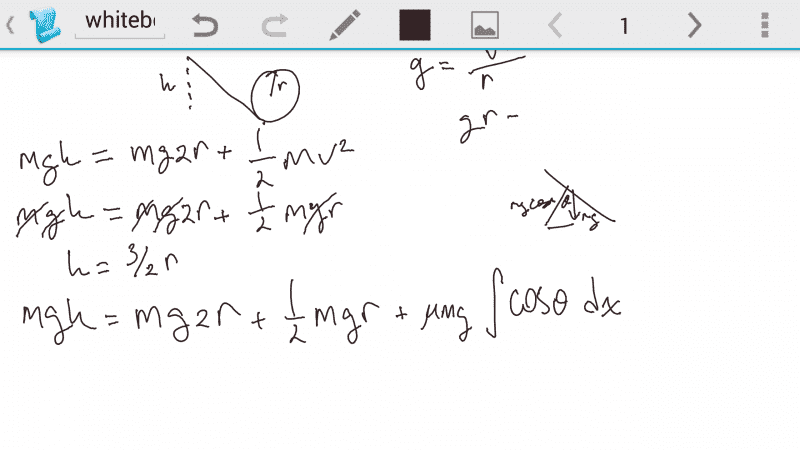 whiteb
1
h
r
g = v / r
gr -
mgh = mg2r + 1/2 mv²
mgh = mg2r + 1/2 mgr
h = 3/2 r
mg cos θ
mg
mgh = mg2r + 1/2 mgr + μmg ∫ cosθ dx